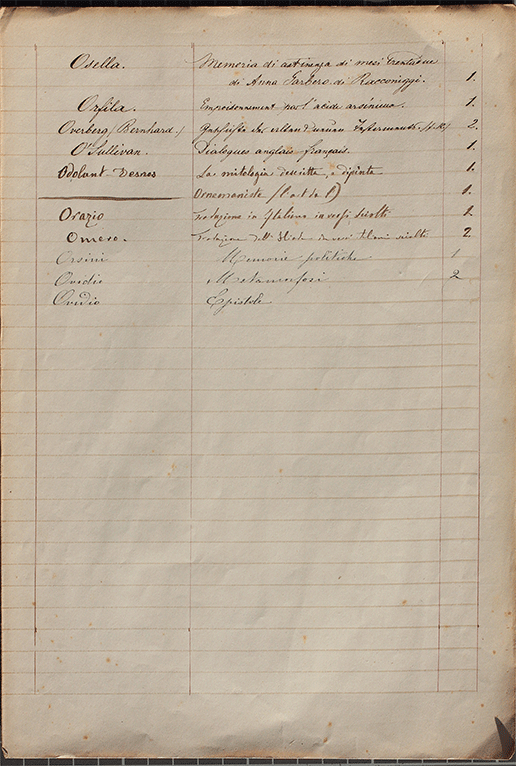 Osella. Memoria di astinenza di mesi trentadue
di Anna Garbero di Racconiggi. 1.
Orfila. Empoisonnement par l'acide arsénieux. 1.
Overberg, Bernhard. 2.
O'Sullivan. Dialogues anglais français. 1.
Odolant Desnos La mitologia descritta e dipinta 1.
Ornemaniste (l'art de l') 1.
Orazio Traduzione in Italiano in versi sciolti 1.
Omero. Traduzione dell' Iliade in versi italiani sciolti 2.
Orsini Memorie politiche 1
Ovidio Metamorfosi 2
Ovidio Epistole